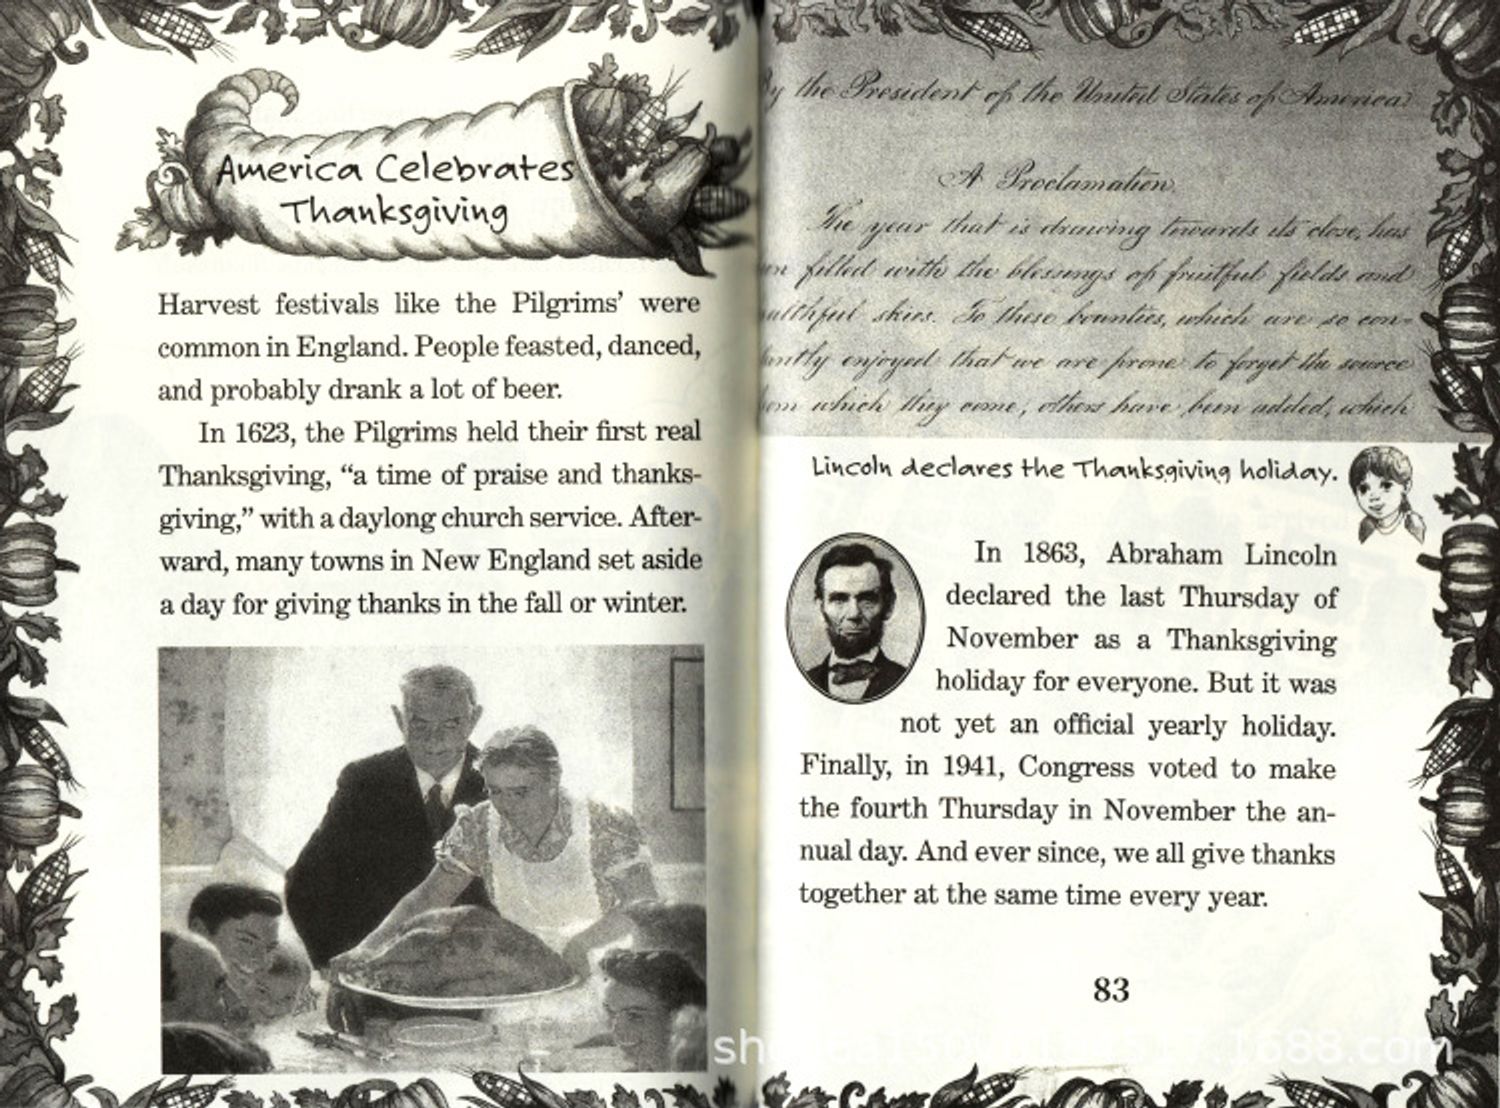 America Celebrates
Thanksgiving
Harvest festivals like the Pilgrims' were
common in England. People feasted, danced,
and probably drank a lot of beer.
In 1623, the Pilgrims held their first real
Thanksgiving, “a time of praise and thanks-
giving,” with a daylong church service. After-
ward, many towns in New England set aside
a day for giving thanks in the fall or winter.
By the President of the United States of America
A Proclamation.
The year that is drawing towards its close, has
filled with the blessings of fruitful fields and
skies. To these bounties, which are so con-
enjoyed that we are prone to forget the source
which they come, others have been added, which
Lincoln declares the Thanksgiving holiday.
In 1863, Abraham Lincoln
declared the last Thursday of
November as a Thanksgiving
holiday for everyone. But it was
not yet an official yearly holiday.
Finally, in 1941, Congress voted to make
the fourth Thursday in November the an-
nual day. And ever since, we all give thanks
together at the same time every year.
83